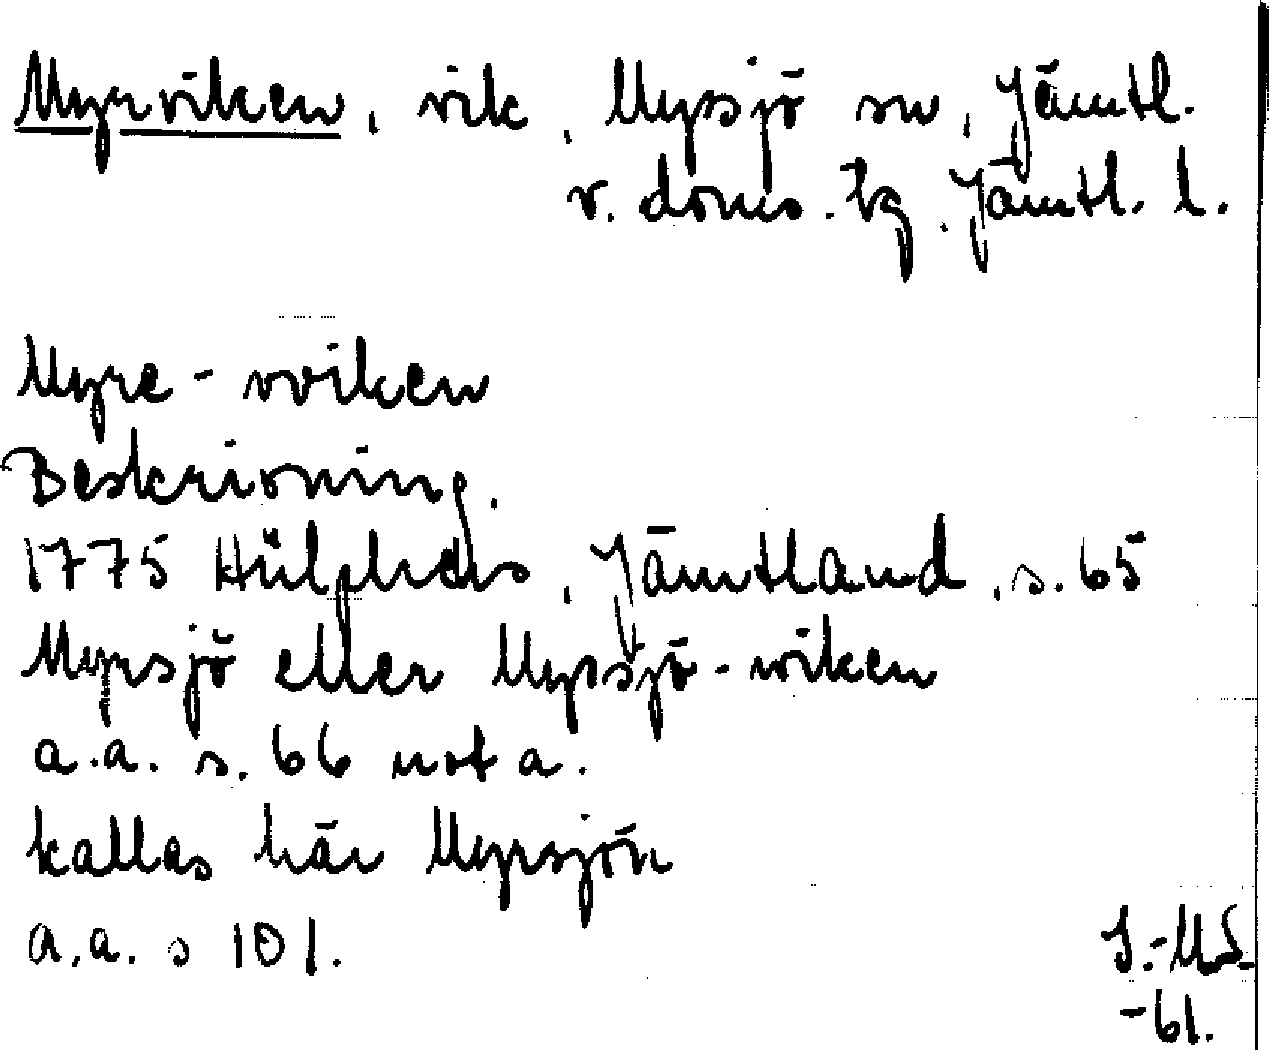 Myrviken, vik, Myssjö sn, Jämtl.
v. doms. hg, Jämtl. l.
Myre-wiken
Beskrivning.
1775 Hülphers, Jämtland, s. 65
Myrsjö eller Myssjö-wiken
a.a. s. 66 not a.
kallas här Myrsjön
a.a. s 101.
I.-M.S.
-61.